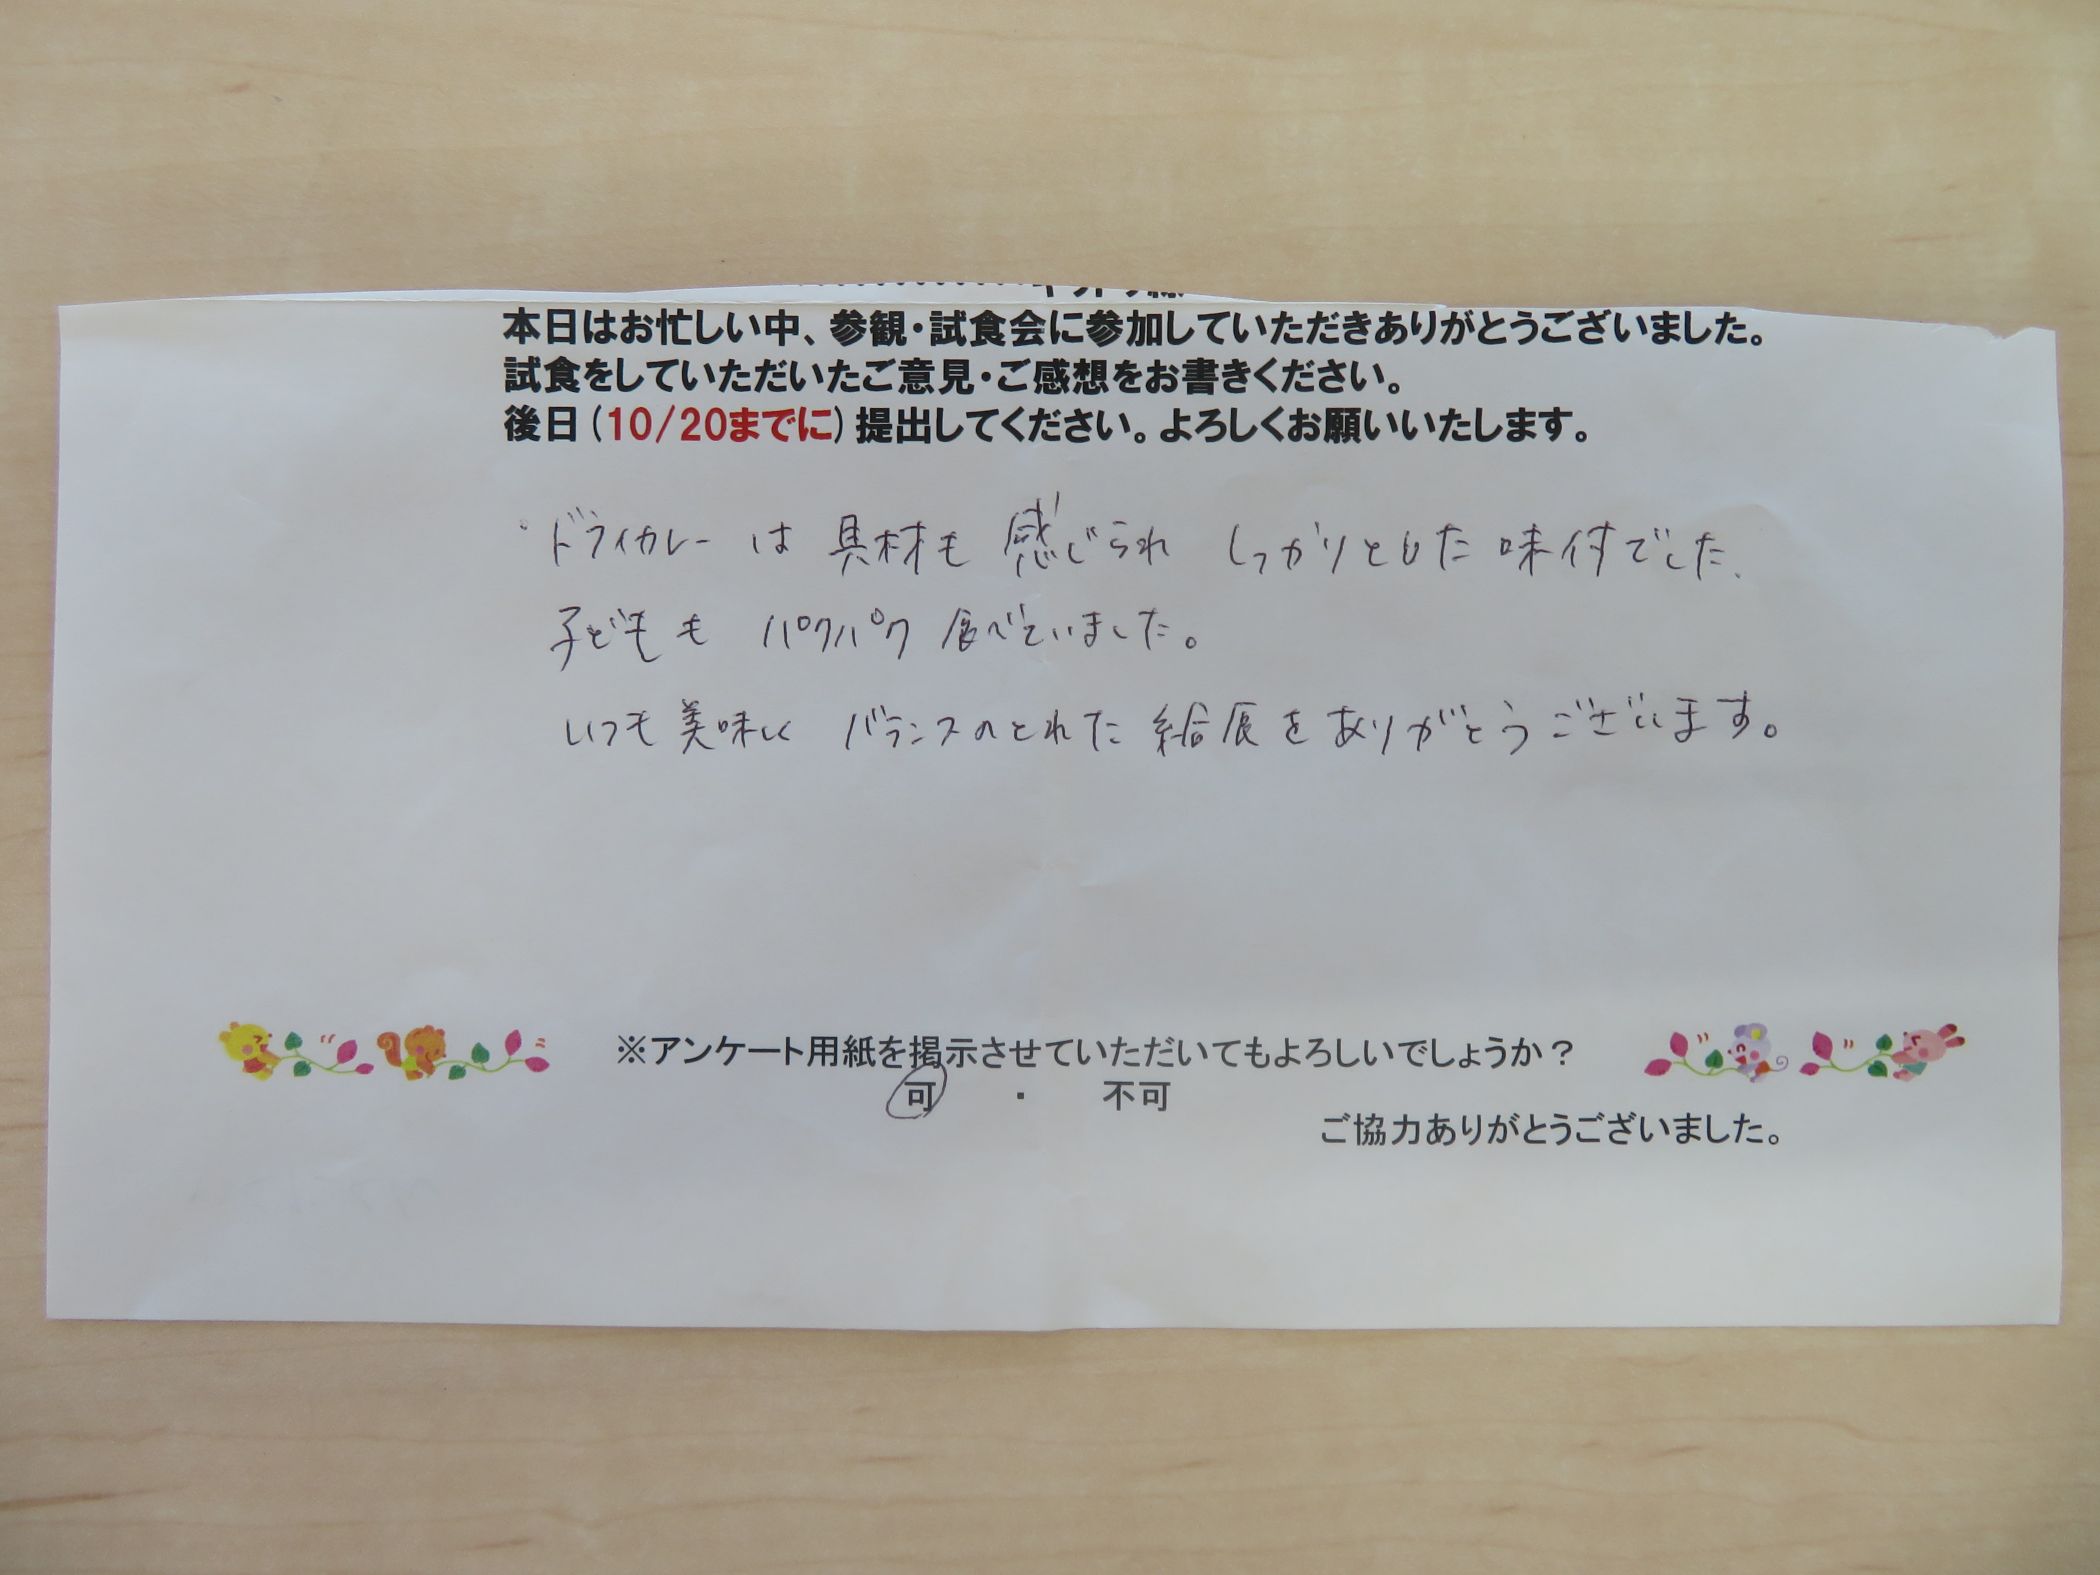 本日はお忙しい中、参観・試食会に参加していただきありがとうございました。
試食をしていただいたご意見・ご感想をお書きください。
後日(10/20までに)提出してください。よろしくお願いいたします。
・ドライカレーは 具材も 感じられ しっかりとした 味付でした。
子どもも パクパク 食べていました。
いつも美味しく バランスのとれた 給食をありがとうございます。
※アンケート用紙を掲示させていただいてもよろしいでしょうか？
可 ・ 不可
ご協力ありがとうございました。